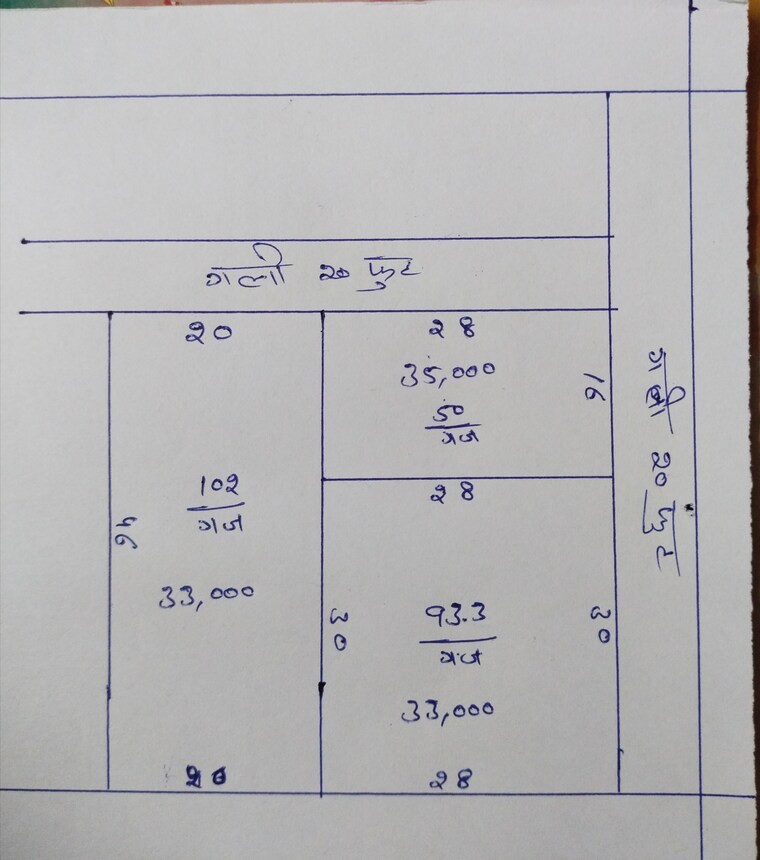 गली 20 फुट
20
28
35,000
50
गज
16
गली 20 फुट
28
102
गज
46
33,000
30
93.3
गज
30
33,000
20
28